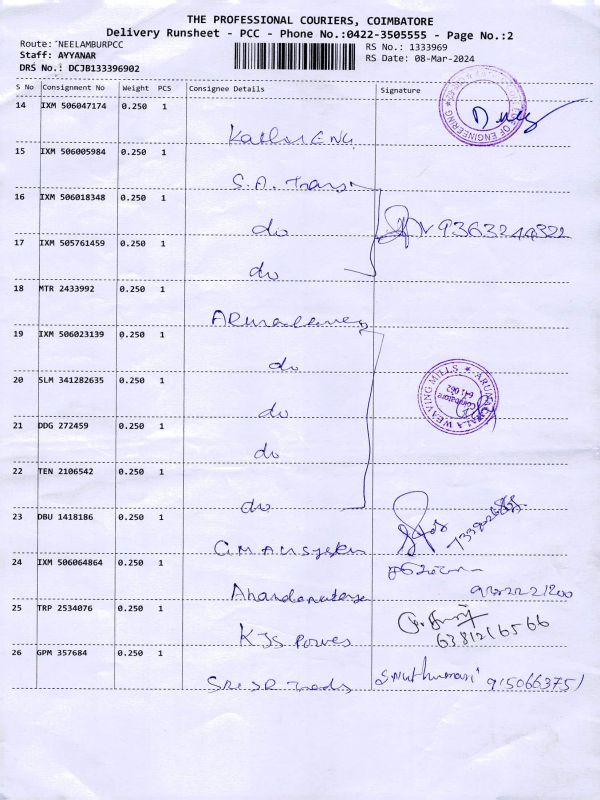 THE PROFESSIONAL COURIERS, COIMBATORE
Delivery Runsheet - PCC - Phone No.:0422-3505555 - Page No.:2
Route: NEELAMBURPCC
RS No.: 1333969
Staff: AYYANAR
RS Date: 08-Mar-2024
DRS No.: DCJB133396902
S No Consignment No Weight PCS Consignee Details Signature
14 IXM 506047174 0.250 1
OF ENGINEERING
15 IXM 506005984 0.250 1
S.A. Trans
16 IXM 506018348 0.250 1
do 9363244322
17 IXM 505761459 0.250 1
do
18 MTR 2433992 0.250 1
19 IXM 506023139 0.250 1
do
20 SLM 341282635 0.250 1
do
WEAVING MILLS
Coimbatore
641 062
21 DDG 272459 0.250 1
do
22 TEN 2106542 0.250 1
do
23 DBU 1418186 0.250 1
24 IXM 506064864 0.250 1
25 TRP 2534076 0.250 1
KJS Powes
6381216566
26 GPM 357684 0.250 1